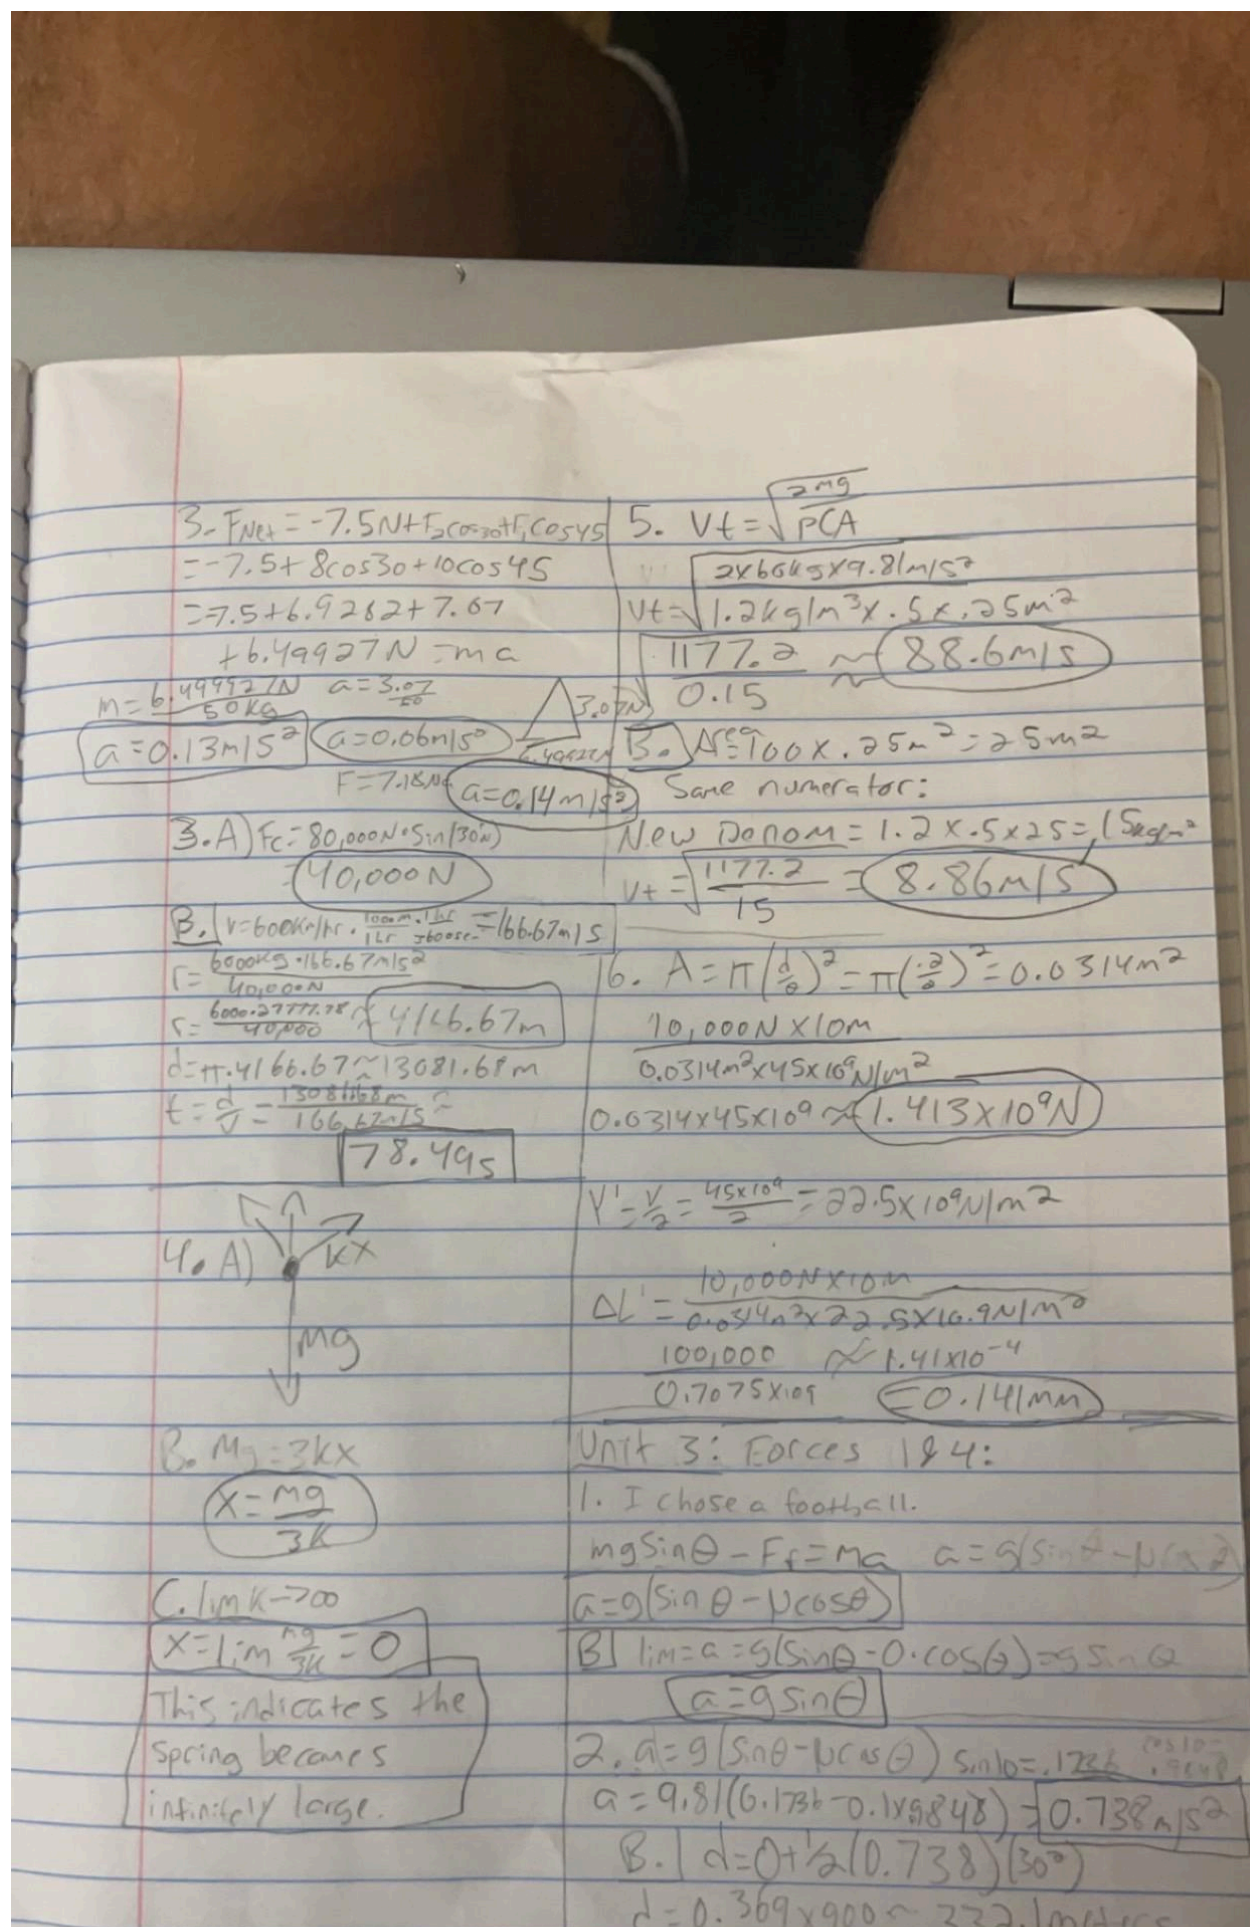 3. FNet = -7.5N+F₂cos30+F₁cos45
= -7.5+8cos30+10cos45
= -7.5+6.9282+7.07
+6.49927N = ma
m = 6.499927N / 50kg a = 3.07 / 50
3.07N
a = 0.13m/s² a = 0.06m/s²
F = 7.18N a = 0.14m/s²
3.A) Fc = 80,000N·Sin(30°)
= 40,000N
B. v = 600Km/hr · 1000m / 1hr · 1hr / 3600sec = 166.67m/s
r = 6000kg·166.67m/s² / 40,000N
r = 6000·27777.78 / 40,000 ≈ 4166.67m
d = π·4166.67 ≈ 13081.68m
t = d/v = 13081.68m / 166.67m/s ≈
78.49s
4. A) kx
mg
B. Mg = 3kx
x = mg / 3k
C. lim k→∞
x = lim mg / 3k = 0
This indicates the
spring becomes
infinitely large.
5. Vt = √ 2mg / PCA
Vt = √ 2x60kgx9.81m/s² / 1.2kg/m³x.5x.25m²
√ 1177.2 / 0.15 ≈ 88.6m/s
B. Area = 100x.25m² = 25m²
Same numerator:
New Denom = 1.2x.5x25 = 15kg/m²
Vt = √ 1177.2 / 15 = 8.86m/s
6. A = π(d/2)² = π(.2/2)² = 0.0314m²
10,000N x 10m / 0.0314m²x45x10⁹N/m²
0.0314x45x10⁹ ≈ 1.413x10⁹N
Y' = Y/2 = 45x10⁹ / 2 = 22.5x10⁹N/m²
ΔL' = 10,000Nx10m / 0.0314m²x22.5x10.9N/m²
100,000 / 0.7075x10⁹ ≈ 1.41x10⁻⁴
= 0.141mm
Unit 3: Forces 1&4:
1. I chose a football.
mgSinθ - Ff = ma a = g(sinθ-μcos
a = g(sinθ - μcosθ)
B] lim = a = g(sinθ-0·cosθ) = gsinθ
a = gsinθ
2. a = g(sinθ-μcosθ) sin10 = .1736 cos10 = .9848
a = 9.81(0.1736-0.1x.9848) = 0.738m/s²
B. d = 0+½(0.738)(30²)
d = 0.369x900 ≈ 332.1meters